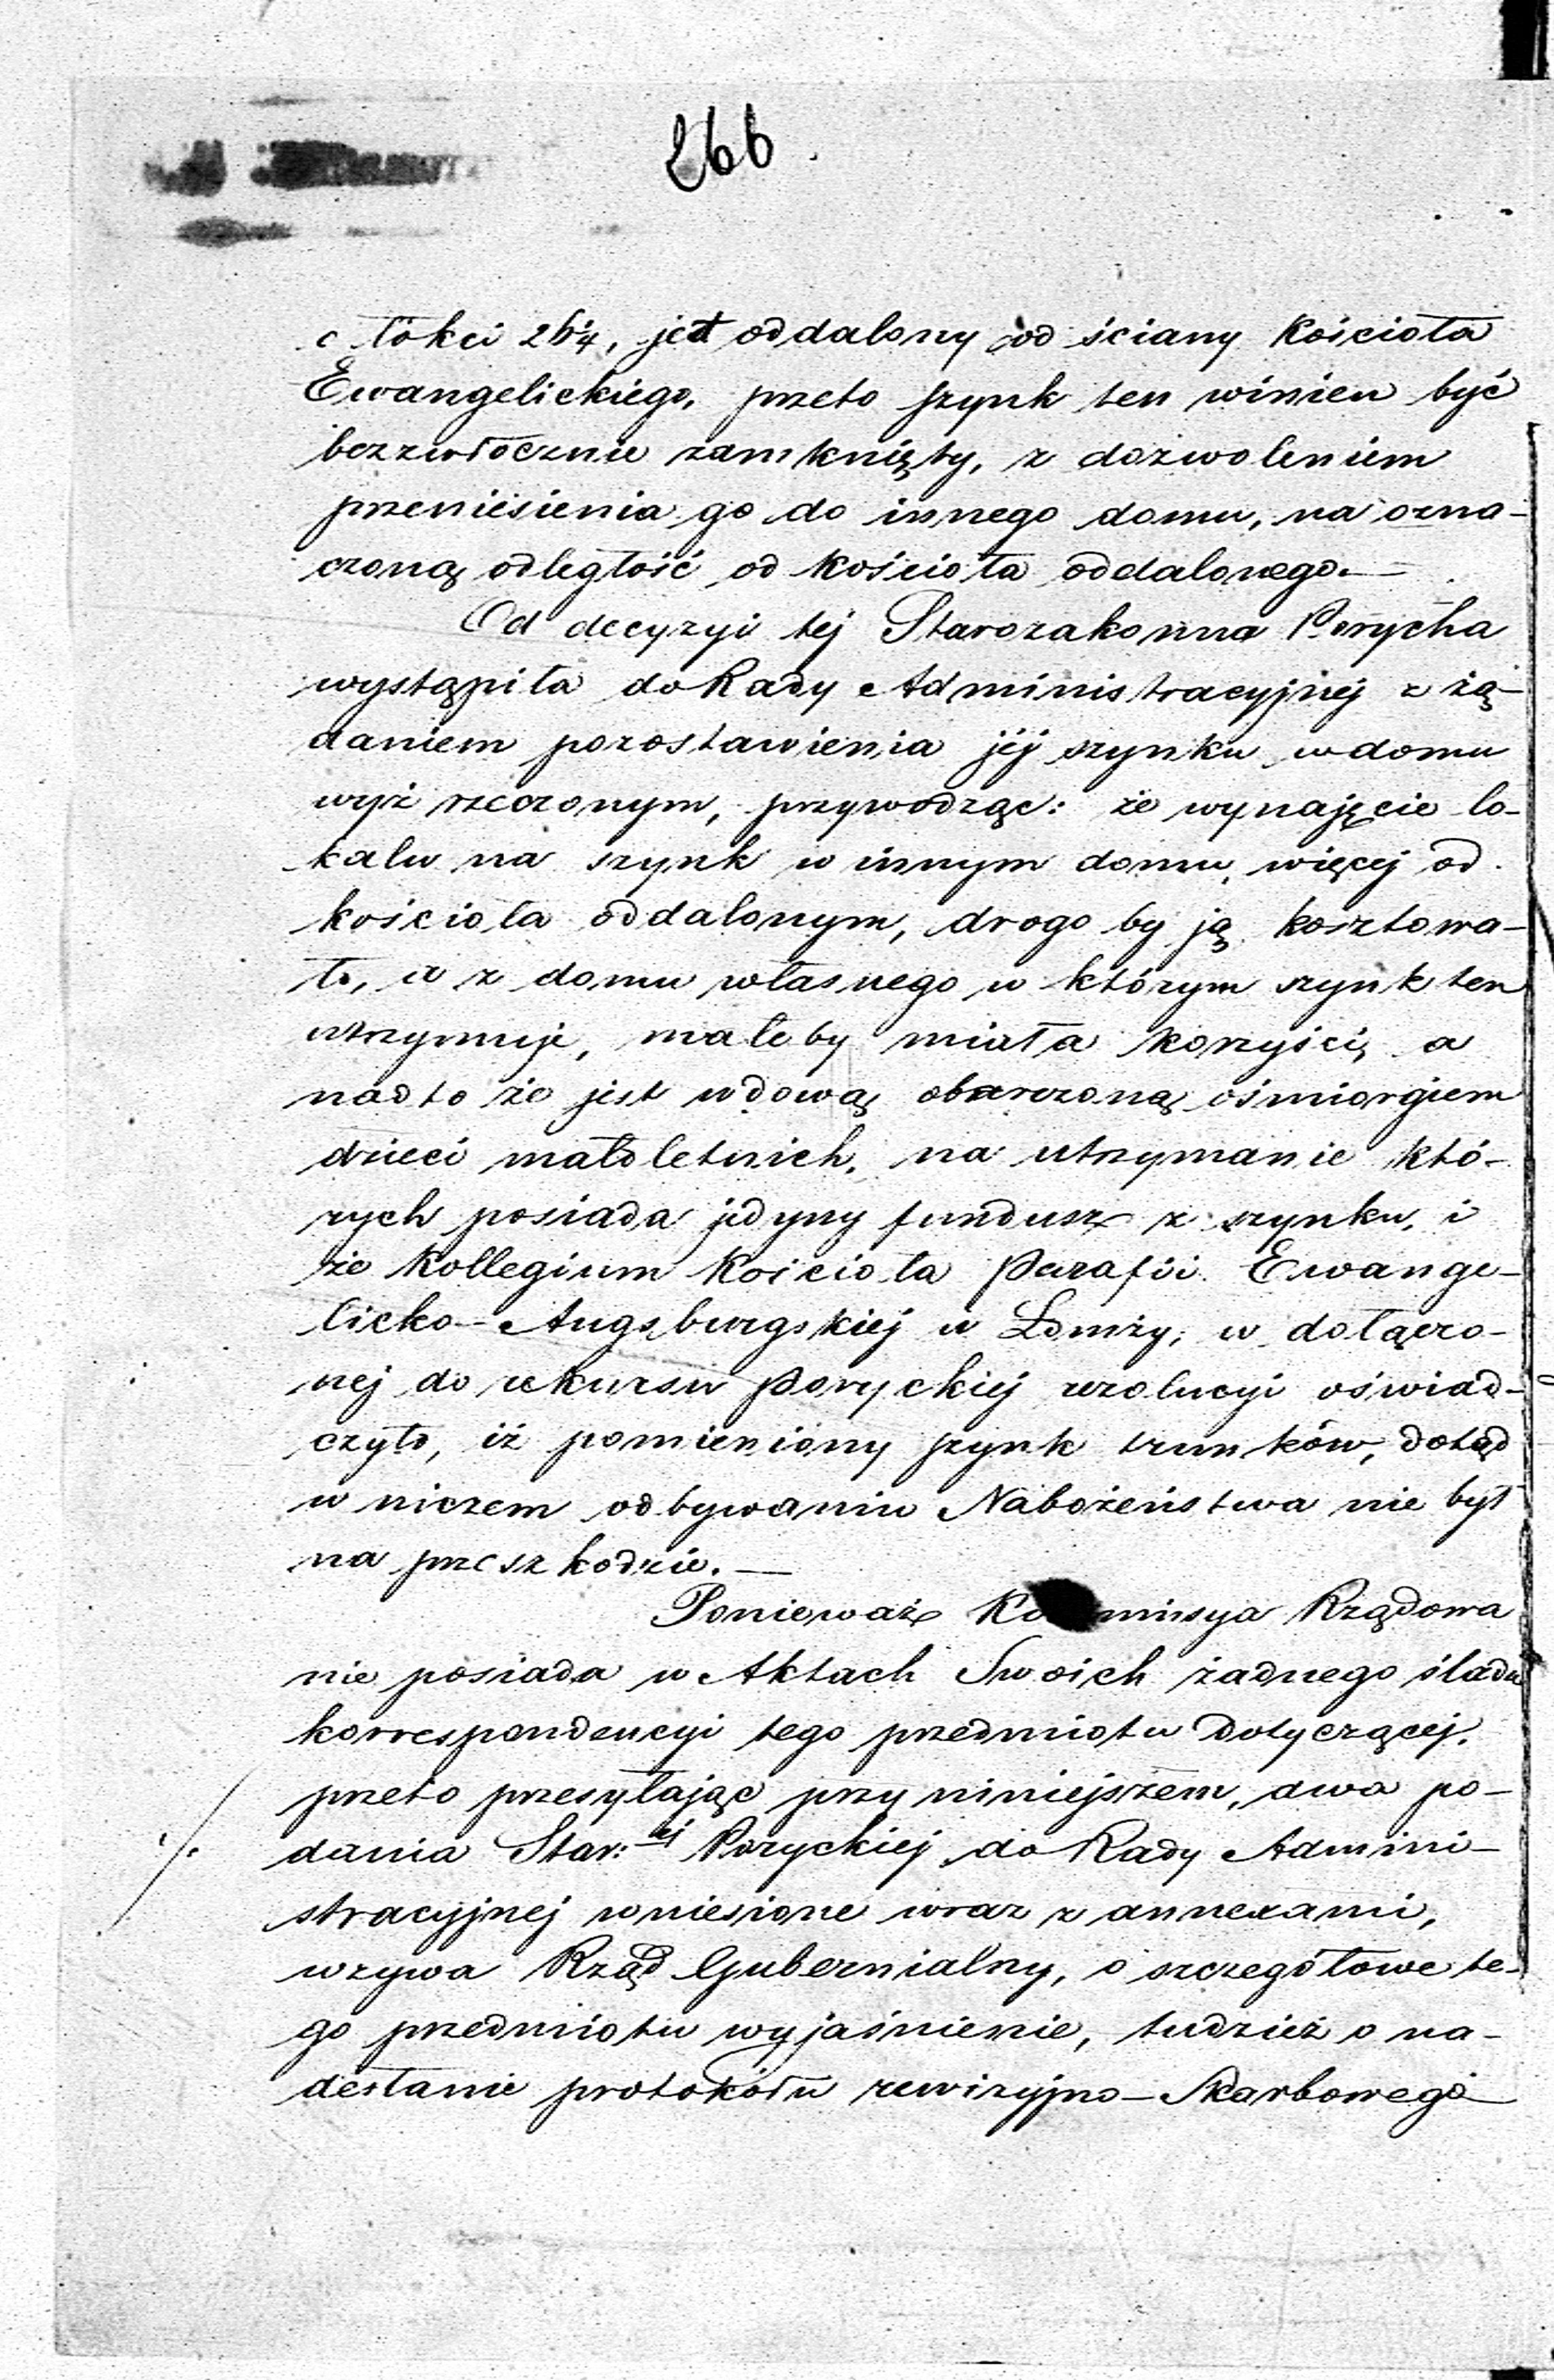 266.
o łokci 26¼, jest oddalony od ściany Kościoła
Ewangelickiego, przeto szynk ten winien być
bezzwłocznie zamknięty, z dozwoleniem
przeniesienia go do innego domu, na ozna-
czoną odległość od Kościoła oddalonego.—
Od decyzyi tej Starozakonna Porycka
wystąpiła do Rady Administracyjnej z żą-
daniem pozostawienia jéj szynku w domu
wyż rzeczonym, przywodząc: że wynajęcie lo-
kalu na szynk w innym domu, więcej od
kościoła oddalonym, drogo by ją kosztowa-
ło, a z domu własnego w którym szynk ten
utrzymuje, małe by miała korzyści, a
nadto że jest wdową obarczoną ośmiorgiem
dzieci małoletnich, na utrzymanie któ-
rych posiada jedyny fundusz z szynku, i
że Kollegium Kościoła Parafii Ewange-
licko-Augsburgskiej w Łomży, w dołączo-
nej do rekursu Poryckiej rezolucyi oświad-
czyło, iż pomieniony szynk trunków, dotąd
w niczem odbywaniu Nabożeństwa nie był
na przeszkodzie.—
Ponieważ Kommisya Rządowa
nie posiada w Aktach Swoich żadnego śladu
korrespondencyi tego przedmiotu dotyczącej,
przeto przesyłając przy niniejszem, dwa po-
./. dania Star:ej Poryckiej do Rady Admini-
stracyjnej wniesione wraz z annexami,
wzywa Rząd Gubernialny, o szczegółowe te-
go przedmiotu wyjaśnienie, tudzież o na-
desłanie protokółu rewizyjno-Skarbowego